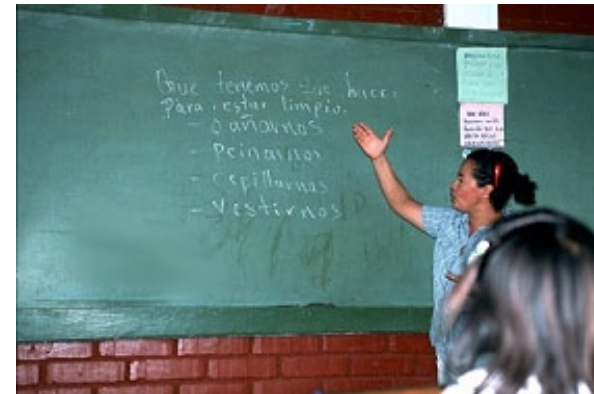 Que tenemos que hacer
Para estar limpio.
- bañarnos
- Peinarnos
- cepillarnos
- Vestirnos